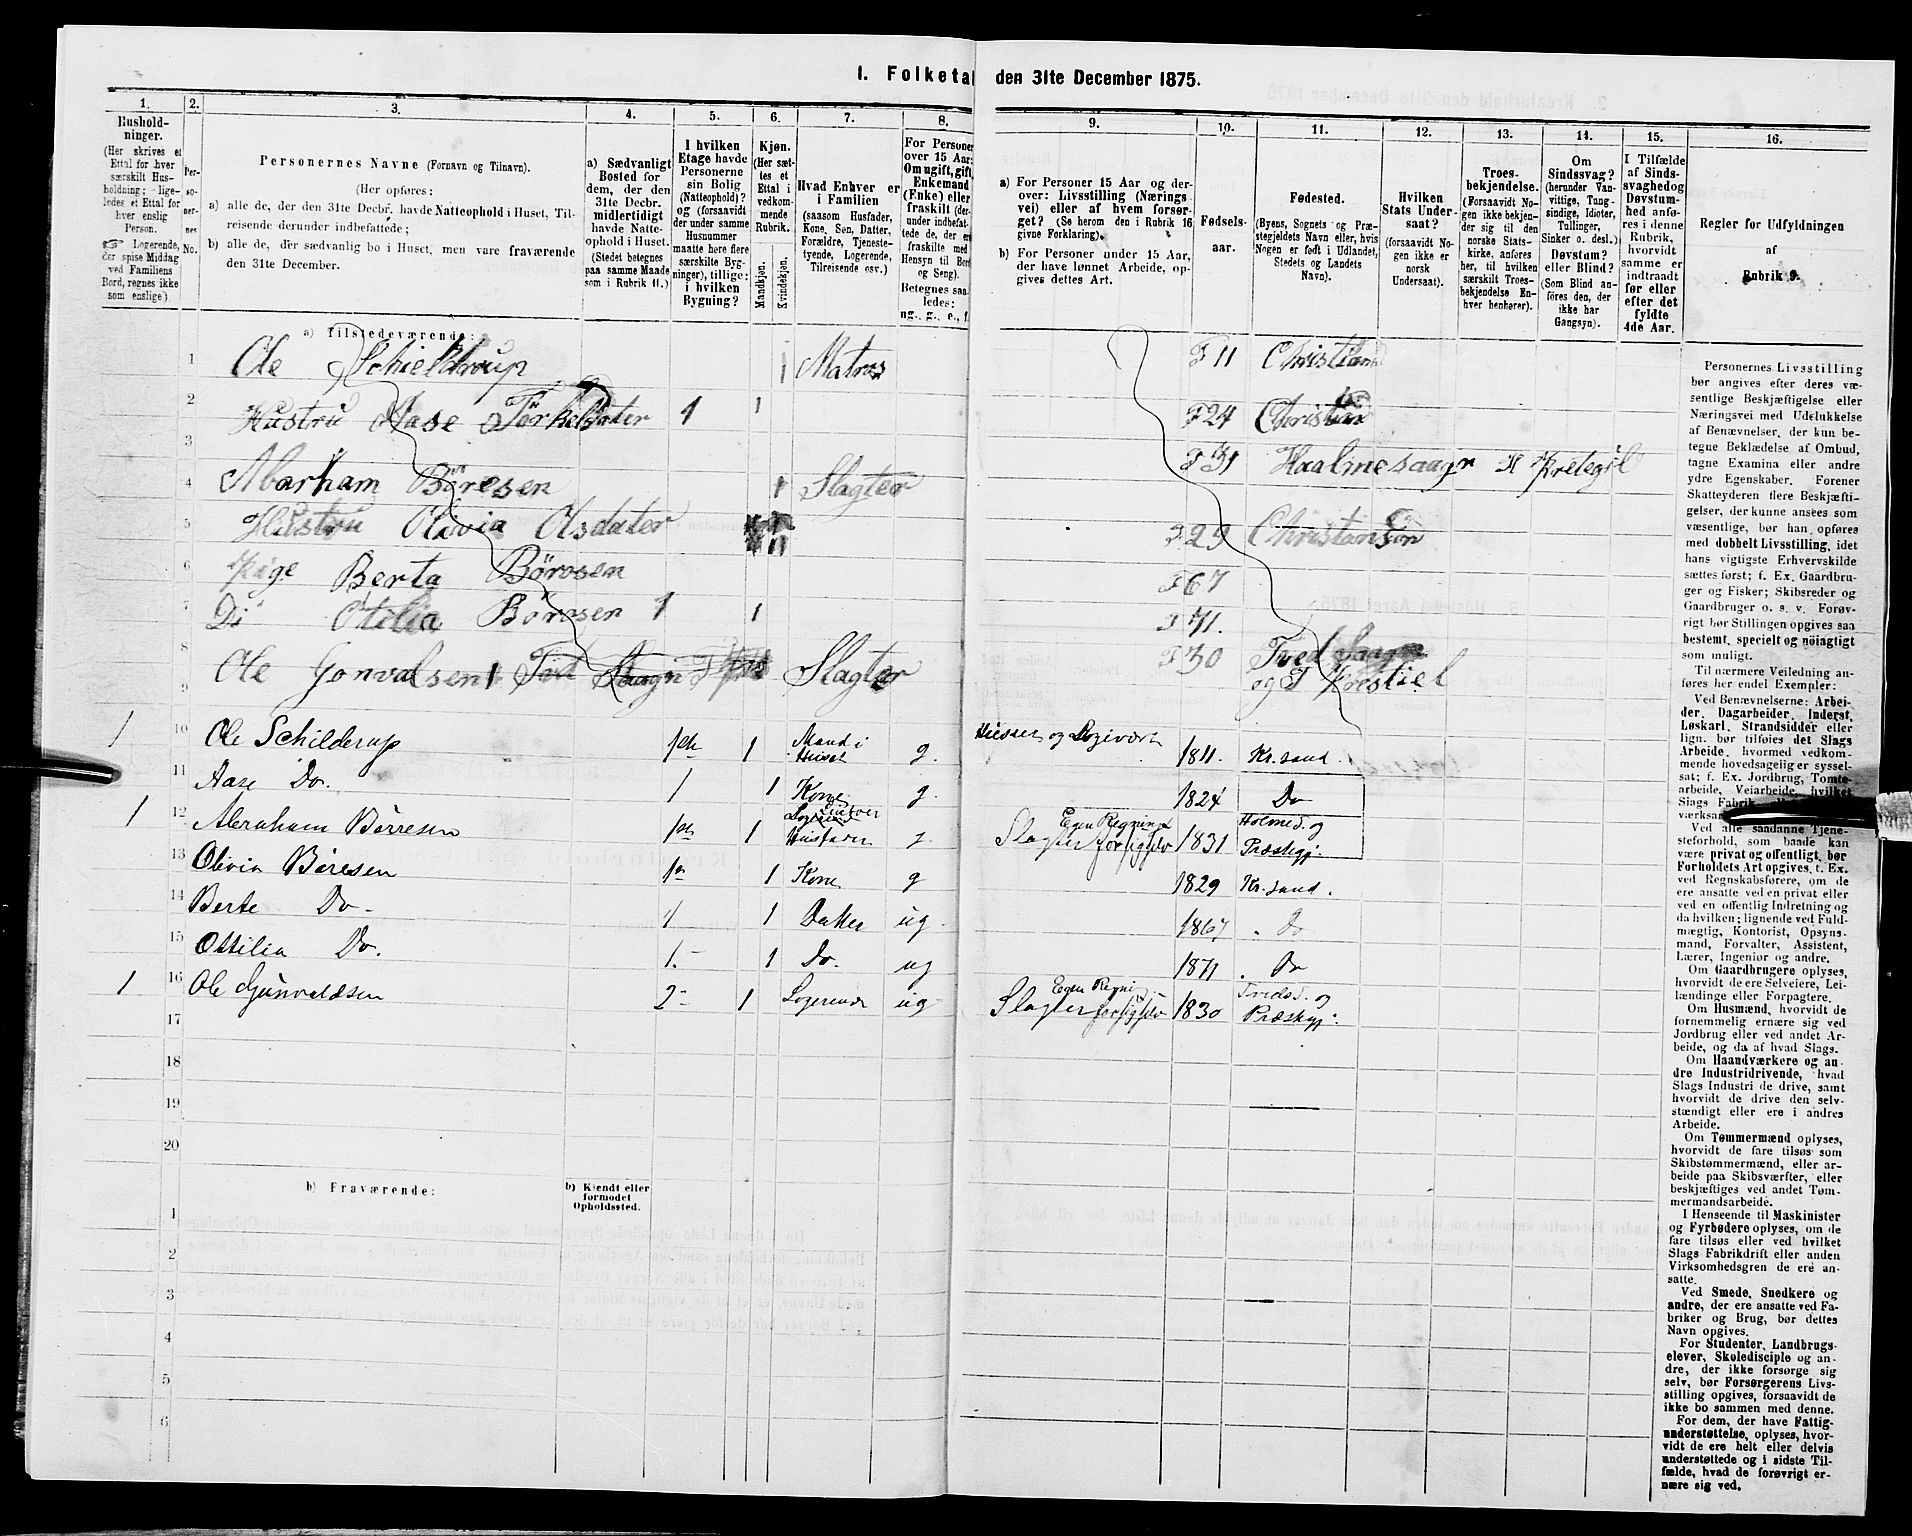 1. Folketal den 31te December 1875.
1. 2. 3. 4. 5. 6. 7. 8. 9. 10. 11. 12. 13. 14. 15. 16.
Hushold-
ninger.
(Her skrives et
Ettal for hver
særskilt Hus-
holdning; lige-
ledes et Ettal for
hver enslig
Person.
☞ Logerende,
der spise Middag
ved Familiens
Bord, regnes ikke
som enslige).
Per-
so-
ner-
nes
No.
Personernes Navne (Fornavn og Tilnavn).
(Her opføres:
a) alle de, der den 31te Decbr. havde Natteophold i Huset, Til-
reisende derunder indbefattede;
b) alle de, der sædvanlig bo i Huset, men vare fraværende
den 31te December.
a) Sædvanligt
Bosted for
dem, der den
31te Decbr.
midlertidigt
havde Natte-
ophold i Huset.
(Stedet betegnes
paa samme Maade
som i Rubrik 11.)
I hvilken
Etage havde
Personerne
sin Bolig
(Natteophold)?
og (forsaavidt
der under samme
Husnummer
maatte høre flere
særskilte Byg-
ninger), tillige:
i hvilken
Bygning?
Kjøn.
(Her sæt-
tes et
Ettal i
vedkom-
mende
Rubrik.
Mandkjøn.
Kvindekjøn.
Hvad Enhver er
i Familien
(saasom Husfader,
Kone, Søn, Datter,
Forældre, Tjeneste-
tyende, Logerende,
Tilreisende osv.)
For Personer
over 15 Aar:
Om ugift, gift,
Enkemand
(Enke) eller
fraskilt (der-
under indbefat-
tede de, der er
fraskilte med
Hensyn til Bord
og Seng).
Betegnes saa-
ledes:
ug., g., e., f.
a) For Personer 15 Aar og der-
over: Livsstilling (Nærings-
vei) eller af hvem forsør-
get? (Se herom den i Rubrik 16
givne Forklaring).
b) For Personer under 15 Aar,
der have lønnet Arbeide, op-
gives dettes Art.
Fødsels-
aar.
Fødested.
(Byens, Sognets og Præ-
stegjeldets Navn eller, hvis
Nogen er født i Udlandet,
Stedets og Landets
Navn).
Hvilken
Stats Under-
saat?
(forsaavidt No-
gen ikke er
norsk
Undersaat).
Troes-
bekjendelse.
(Forsaavidt No-
gen ikke bekjen-
der sig til den
norske Stats-
kirke, anføres
her, til hvilken
særskilt Troes-
bekjendelse En-
hver henhører).
Om
Sindssvag?
(herunder Van-
vittige, Tung-
sindige, Idioter,
Tullinger,
Sinker o. desl.)
Døvstum?
eller Blind?
(Som Blind an-
føres den, der
ikke har
Gangsyn).
I Tilfælde
af Sinds-
svaghed og
Døvstum-
hed anfø-
res i denne
Rubrik,
hvorvidt
samme er
indtraadt
før eller
efter det
fyldte
4de Aar.
Regler for Udfyldningen
af
Rubrik 9.
a) Tilstedeværende:
1 Ole Schieldrup 1 Matros F 11 Christian
2 Hustru Aase Törkelsdater 1 1 F 24 Christian
3 F 31 Haalmesaagn H Kretegil
4 Abarham Böresen 1 Slagter
5 Hustru Olivia Olsdater F 29 Christansan
6 Pige Berta Börosen F 67
7 Do Otilia Böresen 1 1 F 71.
8 Ole Gonvalsen 1 Slagter F 30 Tved Saagn
9 og T Krestiel
1 10 Ole Schilderup 1ste 1 Mand i Huset g. Huseier og Logivært 1811. Kr.sand.
11 Aase Do. 1 1 Kone g. 1824 Do
1 12 Abraham Börresen 1ste 1 Logerende Husfader g. Slagter Egen Regning for sig selv 1831 Holmed. og Præstegj.
13 Olivia Böresen 1ste 1 Kone g 1829 Kr.sand.
14 Berte Do. 1 1 Datter ug 1867 Do
15 Ottilia Do. 1.- 1 Do. ug 1871 Do
1 16 Ole Gunvaldsen 2- 1 Logerende ug Slagter Egen Regning for sig selv 1830 Tveds. og Præstegj.
17
18
19
20
b) Fraværende:
b) Kjendt eller
formodet
Opholdssted.
1
2
3
4
5
6
Personernes Livsstilling
bør angives efter deres væ-
sentlige Beskjæftigelse eller
Næringsvei med Udelukkelse
af Benævnelser, der kun be-
tegne Beklædelse af Ombud,
tagne Examina eller andre
ydre Egenskaber. Forener
Skatteyderen flere Beskjæfti-
gelser, der kunne ansees som
væsentlige, bør han opføres
med dobbelt Livsstilling, idet
hans vigtigste Erhvervskilde
sættes først; f. Ex. Gaardbru-
ger og Fisker; Skibsreder og
Gaardbruger o. s. v. Forøv-
rigt bør Stillingen opgives saa
bestemt, specielt og nøiagtigt
som muligt.
Til nærmere Veiledning an-
føres her endel Exempler:
Ved Benævnelserne: Arbei-
der, Dagarbeider, Inderst,
Løskarl, Strandsidder eller
lign. bør tilføies det Slags
Arbeide, hvormed vedkom-
mende hovedsagelig er syssel-
sat; f. Ex. Jordbrug, Tomte-
arbeide, Veiarbeide, hvilket
Slags Fabrik
værksar
Ved alle saadanne Tjene-
steforhold, som baade kan
være privat og offentligt, bør
Forholdets Art opgives, t. Ex.
ved Regnskabsførere, om de
ere ansatte ved en privat eller
ved en offentlig Indretning og
da hvilken; lignende ved Fuld-
mægtig, Kontorist, Opsyns-
mand, Forvalter, Assistent,
Lærer, Ingeniør og andre.
Om Gaardbrugere oplyses,
hvorvidt de ere Selveiere, Lei-
lændinge eller Forpagtere.
Om Husmænd, hvorvidt de
fornemmelig ernære sig ved
Jordbrug eller ved andet Ar-
beide, og da af hvad Slags.
Om Haandværkere og an-
dre Industridrivende, hvad
Slags Industri de drive, samt
hvorvidt de drive den selv-
stændigt eller ere i andres
Arbeide.
Om Tømmermænd oplyses,
hvorvidt de fare tilsøs som
Skibstømmermænd, eller ar-
beide paa Skibsværfter, eller
beskjæftiges ved andet Tøm-
mermandsarbeide.
I Henseende til Maskinister
og Fyrbødere oplyses, om de
fare tilsøs eller ved hvilket
Slags Fabrikdrift eller anden
Virksomhedsgren de ere an-
satte.
Ved Smede, Snedkere og
andre, der ere ansatte ved Fa-
briker og Brug, bør dettes
Navn opgives.
For Studenter, Landbrugs-
elever, Skoledisciple og an-
dre, der ikke forsørge sig
selv, bør Forsørgerens Livs-
stilling opgives, forsaavidt de
ikke bo sammen med denne.
For dem, der have Fattig-
understøttelse, oplyses, hvor-
vidt de ere helt eller delvis
understøttede og i sidste Til-
fælde, hvad de forøvrigt er-
nære sig ved.